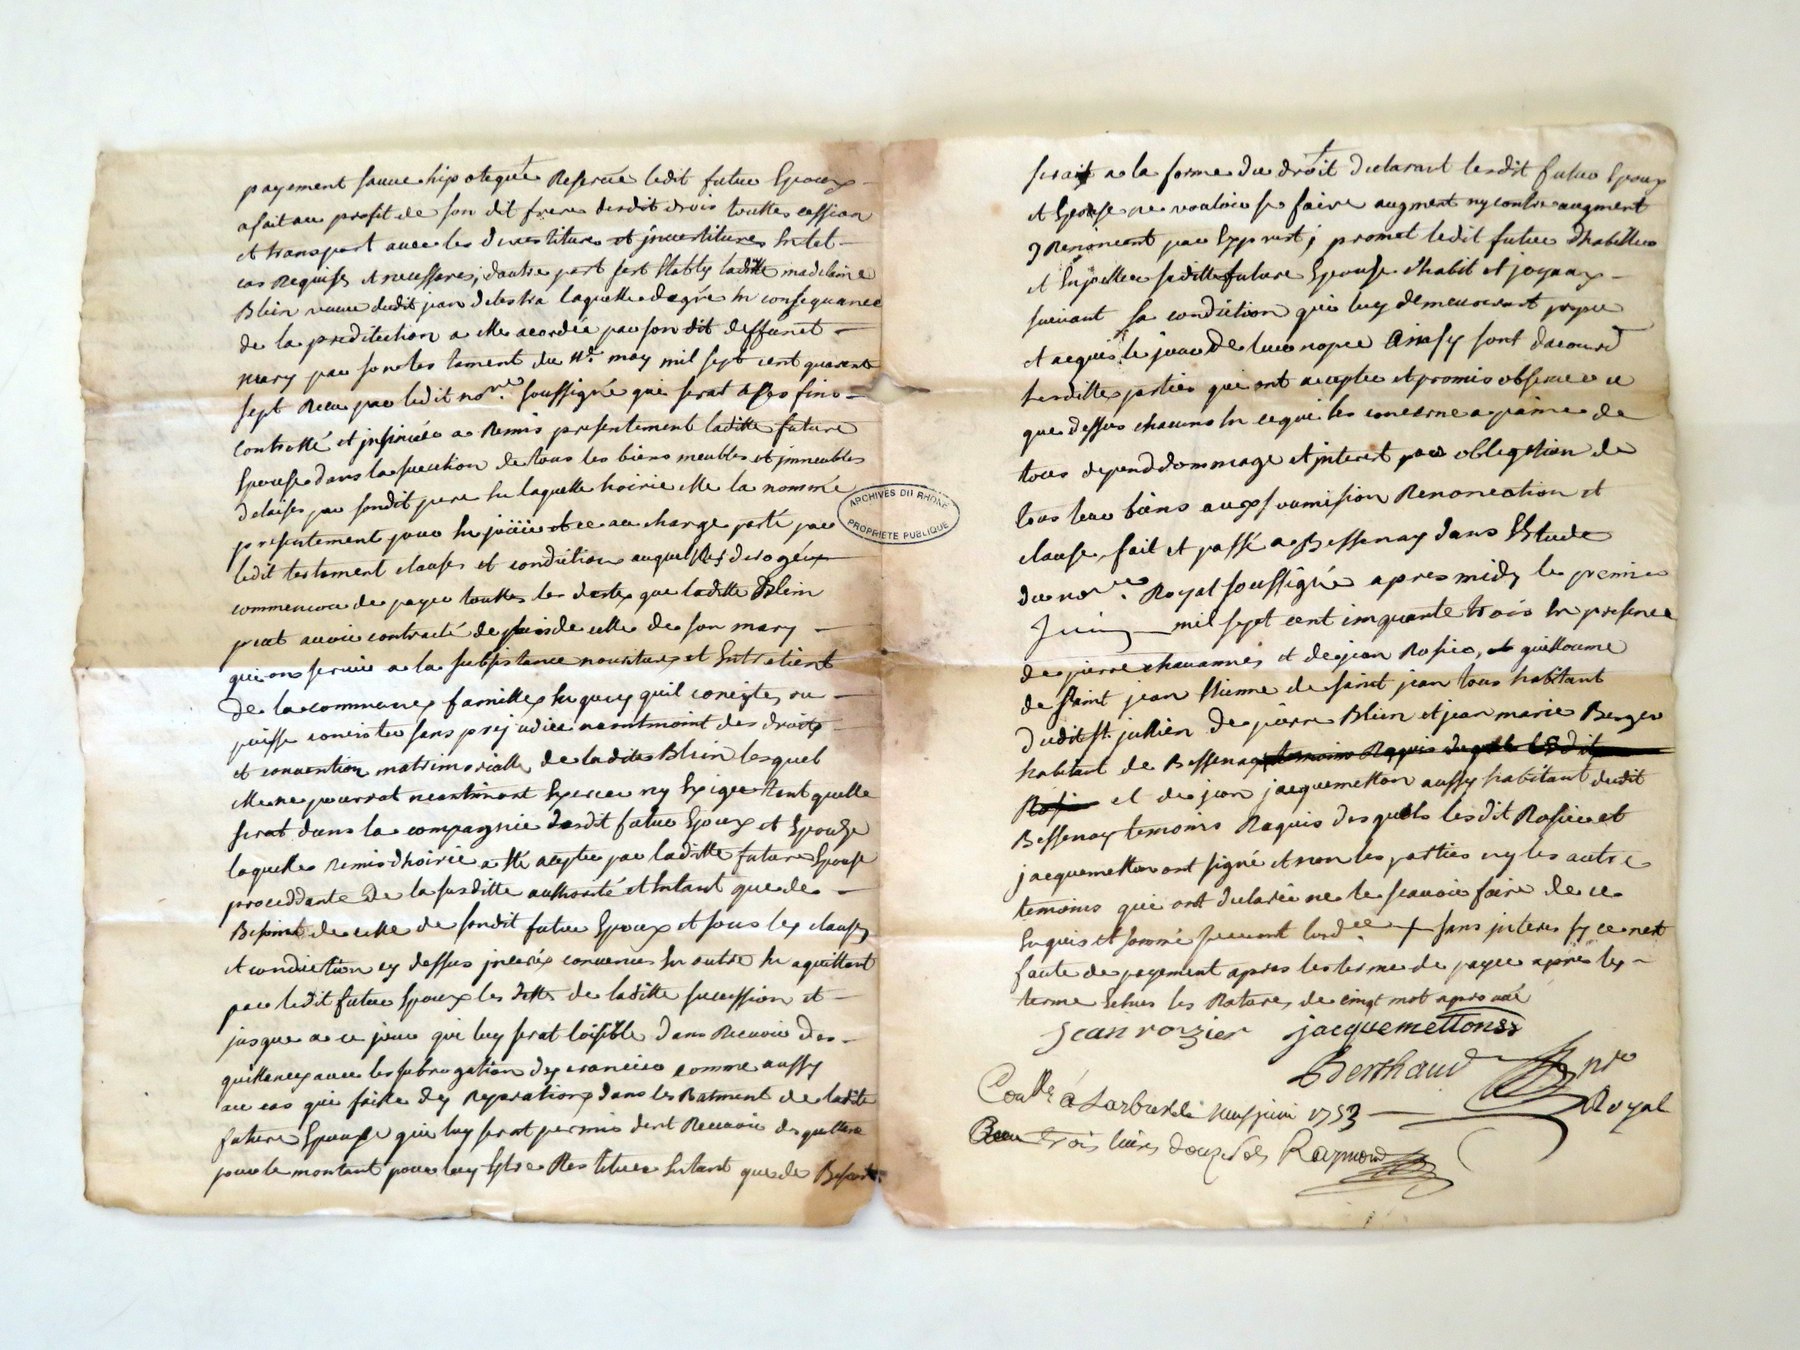 payement sauve hipoteque + Reserve ledit futur Epoux
a fait au profit de son dit frere desdit drois touttes cession
et transport avec les devestitures et jnvestitures En tel
cas Requises et necessaires, dautre part sest Etably laditte madelaine
Blein veuve dudit jean delestra laquelle degré En consequance
de la predilection a elle acordée par son dit deffunct
mary par son testament du may mil sept cent quarente
sept Receu par ledit nore. soussigné qui serat a ses fins
controllé et jnsinuée a Remis presentement laditte future
Epouse dans la sucection de tous les biens meubles et jmmeubles
delaisés par sondit pere En laquelle hoirie elle la nommé
presentement pour En joüir et ce au charge porté par
ledit testament clauses et condiction auquelles derogéux
commencera de payer touttes les dettes que laditte Blein
peut avoir contracté depuis de celle de son mary
quions servie a la subsistance nouriture et Entretient
de la commune famille En quoy quil concistes ou
puisse concister sans prejudice neantmoint des droits
et convention matrimonialle de ladite Blein lesquel
elle ne pourrat neantmoint Exercer ny Exiger tant quelle
serat dans la compagnie desdit futur Epoux et Epouse
laquelle Remis dhoirie a Eté aceptée par laditte future Epouse
proceddante de la susditte authorité et Entant que de
Besoint de celle de sondit futur Epoux et sous les clauses
et condiction cy dessus jnserés convenus En outre En aquittant
par ledit futur Epoux les dettes de laditte sucession et
jusque a ce jour qui luy serat loisible dans Recevoir des
quittances avec les subrogation des creanciers comme aussy
au cas qui faite des Reparations dans les Batiment de ladite
future Epouse qui luy serat permis dent Recevoir des quittance
pour le montant pour luy Estre Restituer Entant que de Besoint
serait a la forme du droit + declarant lesdit futur Epoux
et Epouse ne vouloir se faire augment ny contre augment
y Renoncent par Exprest, promet ledit futur dhabiller
et Enjoeller saditte future Epouse dhabit et joyaux
suivant sa condiction qui luy demeureront propre
et acquis le jour de leur nopce Ainsy sont dacourd
lesditte parties qui ont acceptée et promis observer ce
que dessus chacuns En ce qui les concerne a paine de
tous depend dommage et jnterest par obligation de
tous leur biens aux soumission Renonciation et
clause, fait et passé a Bessenay dans LEtude
du nore. Royal soussigné apres midy le premier
Juin mil sept cent cinquante trois En presence
de pierre chavannes et de jean Rosier, guillaume
de saint jean Etienne de saint jean tous habitant
dudit st. jullien de pierre Blein et jean marie Berger
habitant de Bessenay
et de jean jacquemetton aussy habitant dudit
Bessenay temoins Requis desquels lesdit Rosier et
jacquemetton ont signé et non les parties ny les autre
temoins qui ont declarée ne le scavoir faire de ce
Enquis et sommé suivant lordce. + sans jnterest sy ce nest
faute de payement apres les terme de payer après les
terme Echus les Rature, de cinqt mot aprouvé
jean rozier jacquemettons
Berthaud nre
Royal
Conllé á Larbresle neuf juin 1753
Receu trois livres douze sols Raymond
ARCHIVES DU RHONE
PROPRIETE PUBLIQUE